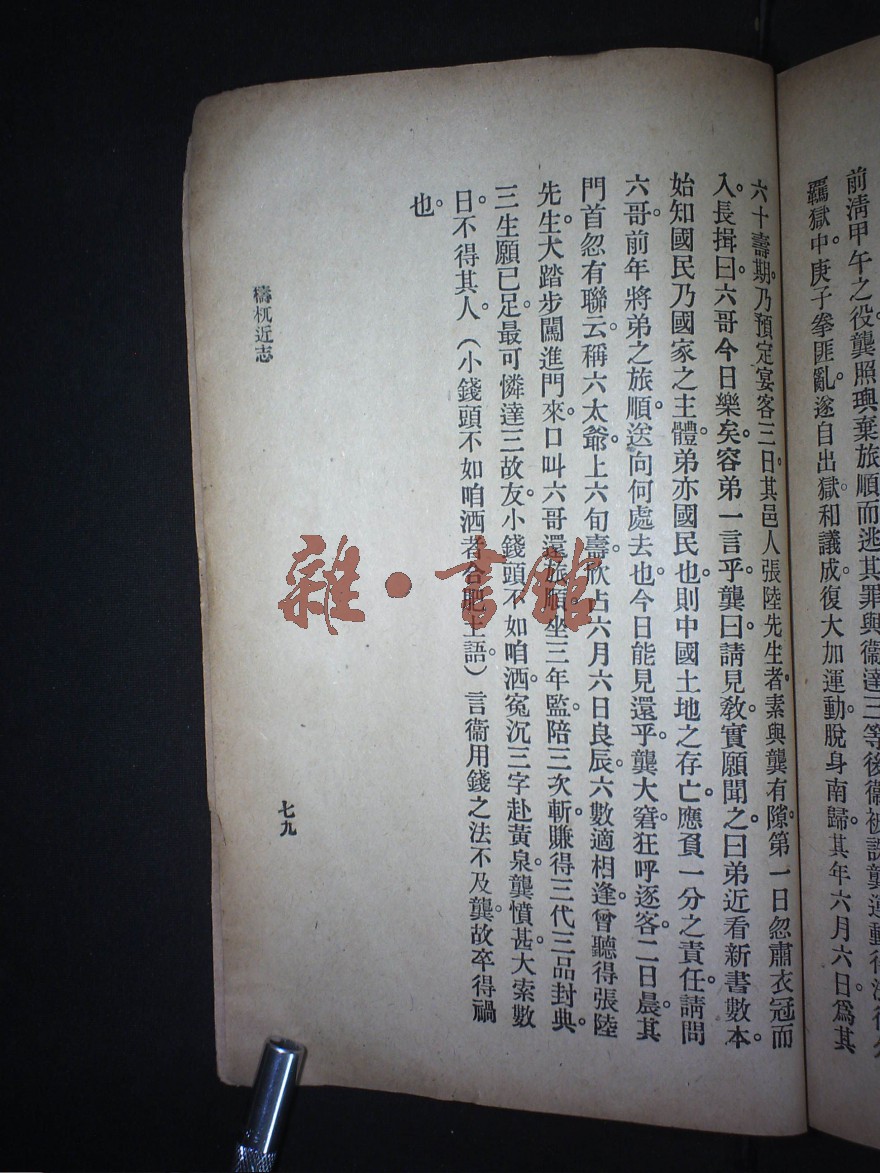 前淸甲午之役龔照璵棄旅順而逃其罪與衞達三等後衞被誅龔運動得
羈獄中庚子拳匪亂。遂自出獄和議成。復大加運動。脫身南歸。其年六月六日。爲其
六十壽期。乃預定宴客三日。其邑人張陸先生者。素與龔有隙。第一日忽肅衣冠而
入。長揖曰。六哥今日樂矣。容弟一言乎。龔曰。請見敎。實願聞之。曰弟近看新書數本。
始知國民乃國家之主體。弟亦國民也。則中國土地之存亡。應負一分之責任。請問
六哥。前年將弟之旅順。送向何處去也。今日能見還乎。龔大窘。狂呼逐客。二日晨。其
門首忽有聯云。稱六太爺。上六旬壽。欣占六月六日良辰。六數適相逢。曾聽得張陸
先生。大踏步闖進門來。口叫六哥還旅順。坐三年監。陪三次斬。賺得三代三品封典。
三生願已足。最可憐達三故友。小錢頭不如咱洒。寃沉三字赴黃泉。龔憤甚。大索數
日。不得其人。（小錢頭不如咱洒者合肥土語。）言衞用錢之法不及龔。故卒得禍
也。
檮杌近志
七九
雜·書館